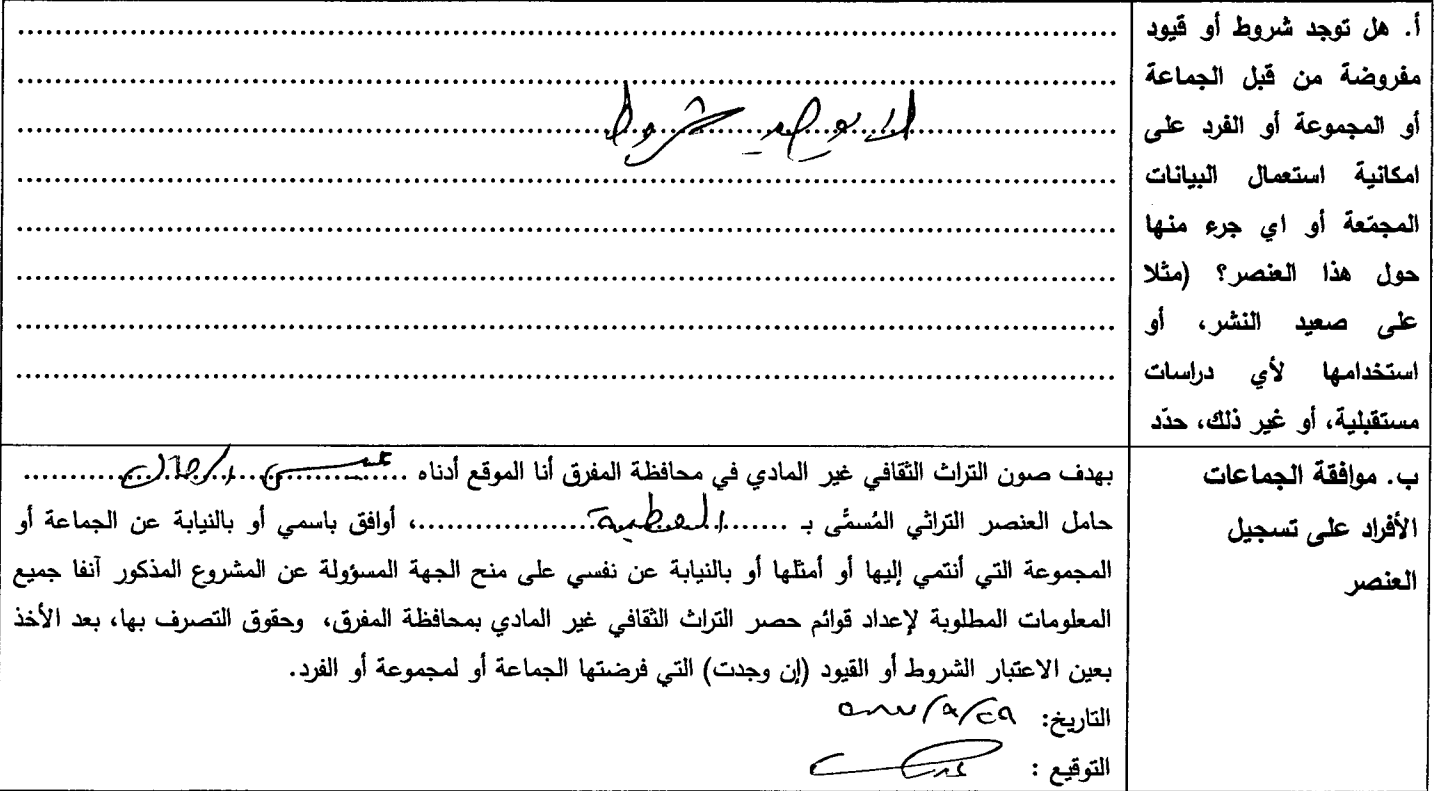 أ. هل توجد شروط أو قيود
مفروضة من قبل الجماعة
أو المجموعة أو الفرد على
امكانية استعمال البيانات
المجمّعة أو اي جرء منها
حول هذا العنصر؟ (مثلا
على صعيد النشر، أو
استخدامها لأي دراسات
مستقبلية، أو غير ذلك، حدّد
لا يوجد شروط
ب. موافقة الجماعات
الأفراد على تسجيل
العنصر
بهدف صون التراث الثقافي غير المادي في محافظة المفرق أنا الموقع أدناه
حامل العنصر التراثي المُسمَّى بـ ........................، أوافق باسمي أو بالنيابة عن الجماعة أو
المجموعة التي أنتمي إليها أو أمثلها أو بالنيابة عن نفسي على منح الجهة المسؤولة عن المشروع المذكور آنفا جميع
المعلومات المطلوبة لإعداد قوائم حصر التراث الثقافي غير المادي بمحافظة المفرق، وحقوق التصرف بها، بعد الأخذ
بعين الاعتبار الشروط أو القيود (إن وجدت) التي فرضتها الجماعة أو لمجموعة أو الفرد.
التاريخ:
التوقيع :